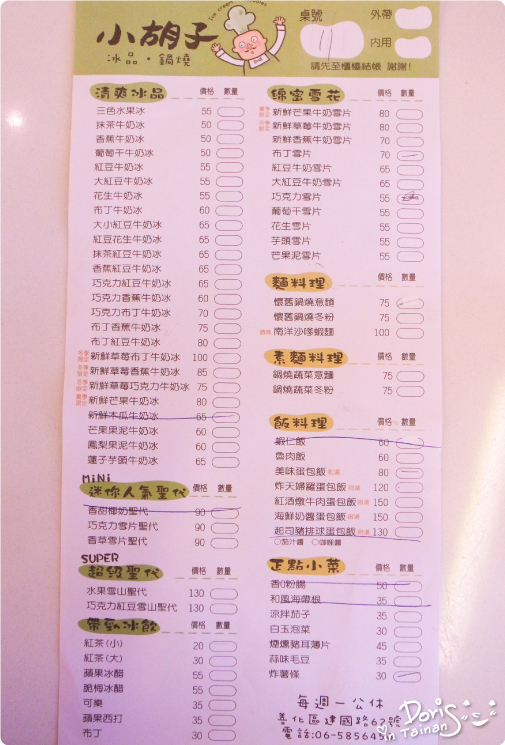 小胡子
冰品・鍋燒
桌號
11
外帶
內用
請先至櫃檯結帳 謝謝!
清爽冰品 價格 數量
三色水果冰 55
抹茶牛奶冰 50
香蕉牛奶冰 50
葡萄干牛奶冰 50
紅豆牛奶冰 55
大紅豆牛奶冰 55
花生牛奶冰 55
布丁牛奶冰 60
大小紅豆牛奶冰 65
紅豆花生牛奶冰 65
抹茶紅豆牛奶冰 65
香蕉紅豆牛奶冰 65
巧克力紅豆牛奶冰 65
巧克力香蕉牛奶冰 65
巧克力布丁牛奶冰 70
布丁香蕉牛奶冰 75
布丁紅豆牛奶冰 80
新鮮草莓布丁牛奶冰 100
新鮮草莓香蕉牛奶冰 85
新鮮草莓巧克力牛奶冰 75
新鮮芒果牛奶冰 80
新鮮木瓜牛奶冰 65
芒果果泥牛奶冰 60
鳳梨果泥牛奶冰 60
蓮子芋頭牛奶冰 65
MiNi
迷你人氣聖代 價格 數量
香甜椰奶聖代 90
巧克力雪片聖代 90
香草雪片聖代 90
SUPER
超級聖代 價格 數量
水果雪山聖代 130
巧克力紅豆雪山聖代 130
帶勁冰飲 價格 數量
紅茶(小) 20
紅茶(大) 30
蘋果冰醋 55
脆梅冰醋 55
可樂 35
蘋果西打 35
布丁 30
綿蜜雪花 價格 數量
新鮮芒果牛奶雪片 80
新鮮草莓牛奶雪片 80
新鮮香蕉牛奶雪片 70
布丁雪片 70
紅豆牛奶雪片 65
大紅豆牛奶雪片 65
巧克力雪片 55
葡萄干雪片 55
花生雪片 55
芋頭雪片 55
芒果泥雪片 65
麵料理 價格 數量
懷舊鍋燒意麵 75
懷舊鍋燒冬粉 75
南洋沙嗲蝦麵 100
素麵料理 價格 數量
鍋燒蔬菜意麵 75
鍋燒蔬菜冬粉 75
飯料理 價格 數量
蝦仁飯 60
魯肉飯
美味蛋包飯 附湯 80
炸天婦羅蛋包飯 附湯 120
紅酒燉牛肉蛋包飯 附湯 150
海鮮奶醬蛋包飯 附湯 150
起司豬排球蛋包飯 附湯 130
○茄汁醬 ○咖哩醬
正點小菜 價格 數量
香Q粉腸 50
和風海帶根 35
涼拌茄子 35
白玉泡菜 30
煙燻豬耳薄片 45
蒜味毛豆 35
炸薯條 30
每週一公休
善化區建國路62號
電話:06-585645
Doris
in Tainan